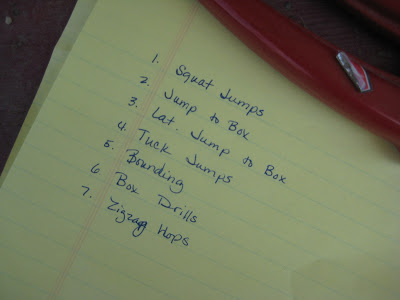 1. Squat Jumps
2. Jump to Box
3. Lat. Jump to Box
4. Tuck Jumps
5. Bounding
6 Box Drills
7. Zigzag Hops